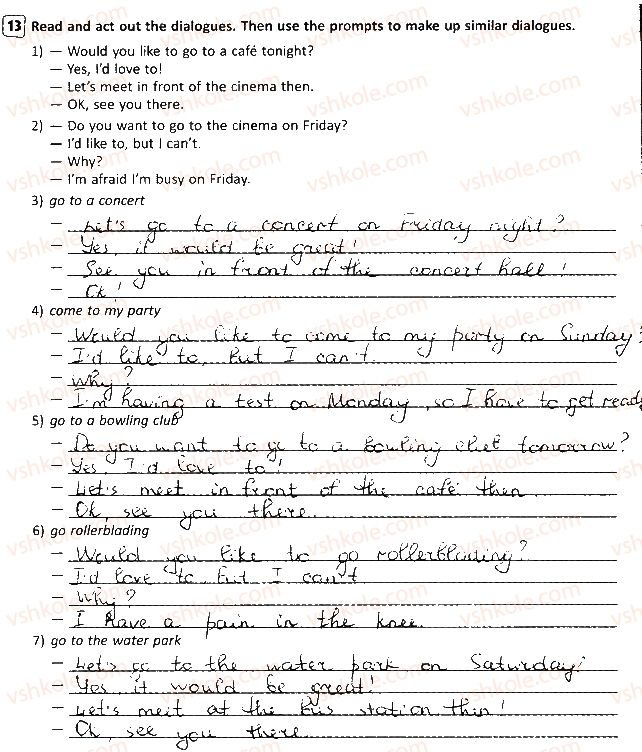 13 Read and act out the dialogues. Then use the prompts to make up similar dialogues.
1) — Would you like to go to a café tonight?
— Yes, I'd love to!
— Let's meet in front of the cinema then.
— OK, see you there.
2) — Do you want to go to the cinema on Friday?
— I'd like to, but I can't.
— Why?
— I'm afraid I'm busy on Friday.
3) go to a concert
— Let's go to a concert on Friday night?
— Yes, it would be great!
— See you in front of the concert hall!
— Ok!
4) come to my party
— Would you like to come to my party on Sunday?
— I'd like to, but I can't.
— Why?
— I'm having a test on Monday, so I have to get ready
5) go to a bowling club
— Do you want to go to a bowling club tomorrow?
— Yes I'd love to!
— Let's meet in front of the café then.
— Ok, see you there.
6) go rollerblading
— Would you like to go rollerblading?
— I'd love to but I can't
— Why?
— I have a pain in the knee.
7) go to the water park
— Let's go to the water park on Saturday!
— Yes it would be great!
— Let's meit at the bus station thin!
— Ok, see you there.
vshkole.com